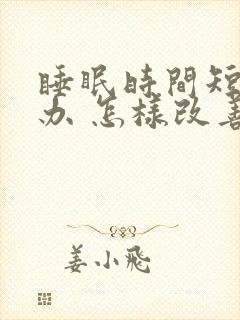 睡眠時間短
办 怎樣改善
姜小飛